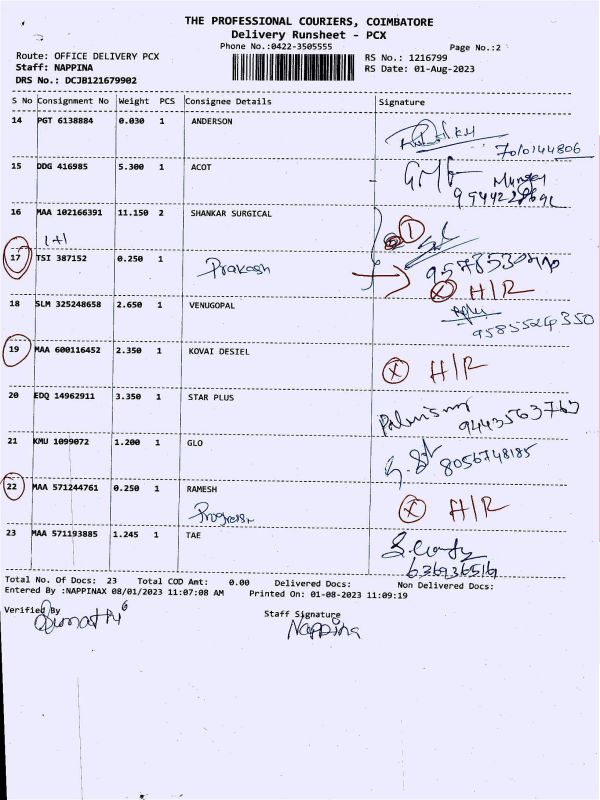 THE PROFESSIONAL COURIERS, COIMBATORE
Delivery Runsheet - PCX
Phone No.:0422-3505555 Page No.:2
Route: OFFICE DELIVERY PCX RS No.: 1216799
Staff: NAPPINA RS Date: 01-Aug-2023
DRS No.: DCJB121679902
S No Consignment No Weight PCS Consignee Details Signature
14 PGT 6138884 0.030 1 ANDERSON
7010144806
15 DDG 416985 5.300 1 ACOT
16 MAA 102166391 11.150 2 SHANKAR SURGICAL
1+1 1
17 TSI 387152 0.250 1
Prakash
X H/R
18 SLM 325248658 2.650 1 VENUGOPAL
9585524350
19 MAA 600116452 2.350 1 KOVAI DESIEL
X H/R
20 EDQ 14962911 3.350 1 STAR PLUS
9443563763
21 KMU 1099072 1.200 1 GLO
8056748185
22 MAA 571244761 0.250 1 RAMESH
X H/R
23 MAA 571193885 1.245 1 TAE
Total No. Of Docs: 23 Total COD Amt: 0.00 Delivered Docs: Non Delivered Docs:
Entered By :NAPPINAX 08/01/2023 11:07:08 AM Printed On: 01-08-2023 11:09:19
Verified By Staff Signature
Nappina